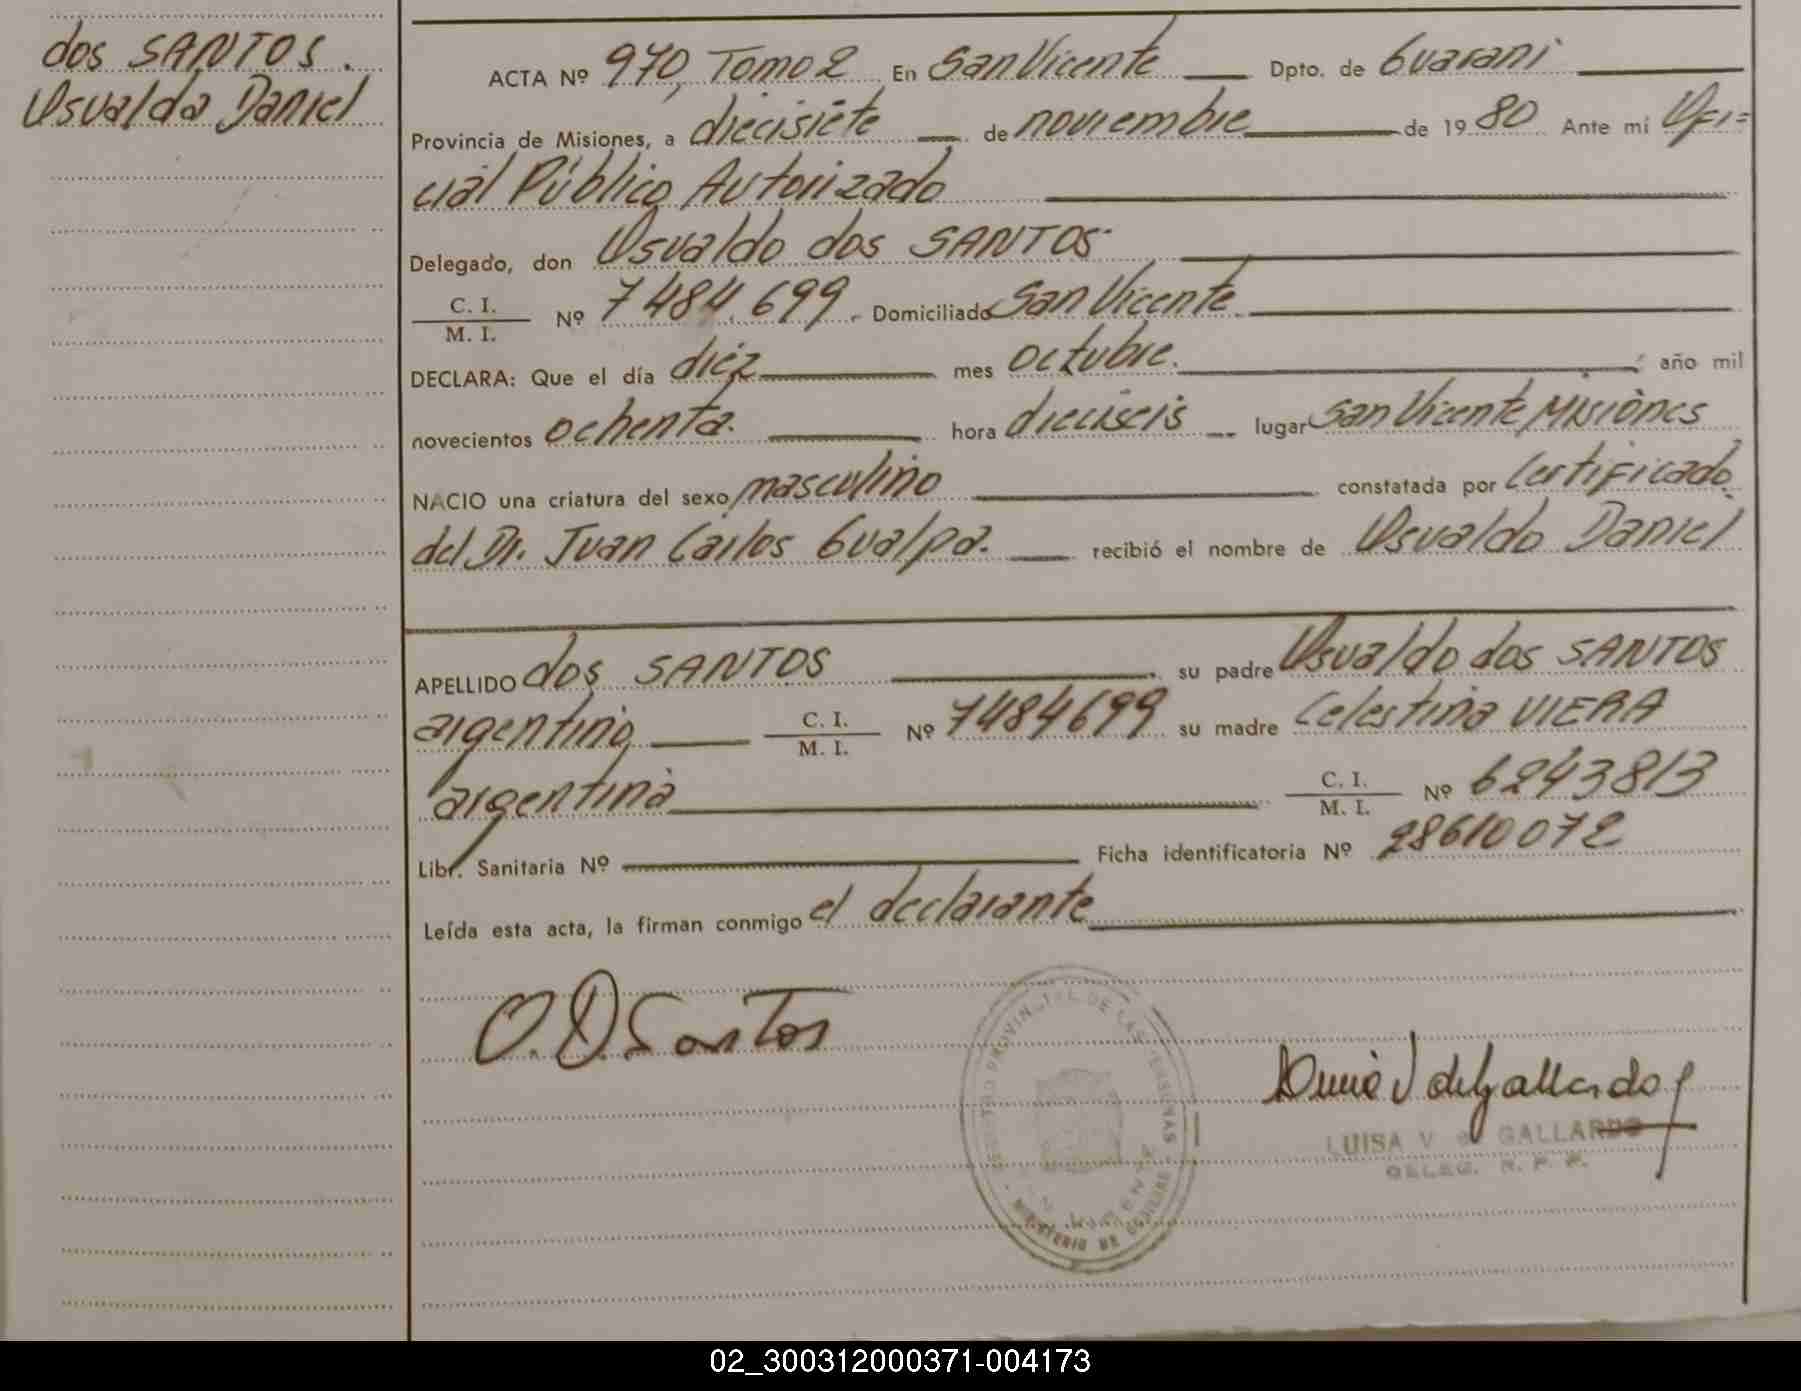 dos SANTOS.
Osvaldo Daniel
ACTA Nº 970, Tomo 2 En San Vicente Dpto. de Guarani
Provincia de Misiones, a diecisiete de noviembre de 1980 Ante mí Ofi=
cial Público Autorizado
Delegado, don Osvaldo dos SANTOS
C. I.
M. I. Nº 7484.699. Domiciliado San Vicente
DECLARA: Que el día diez mes octubre. año mil
novecientos ochenta. hora dieciseis lugar San Vicente, Misiones
NACIO una criatura del sexo masculino constatada por Certificado
del Dr. Juan Carlos Gualpa. recibió el nombre de Osvaldo Daniel
APELLIDO dos SANTOS su padre Osvaldo dos SANTOS
argentino C. I. M. I. Nº 7484699 su madre Celestina VIERA
argentina C. I. M. I. Nº 6243813
Libr. Sanitaria Nº Ficha identificatoria Nº 28610072
Leída esta acta, la firman conmigo el declarante
O. D. Santos
REGISTRO PROVINCIAL DE LAS PERSONAS
MINISTERIO DE GOBIERNO
V de Gallardo
LUISA V de GALLARDO
DELEG. R. P. P.
02_300312000371-004173